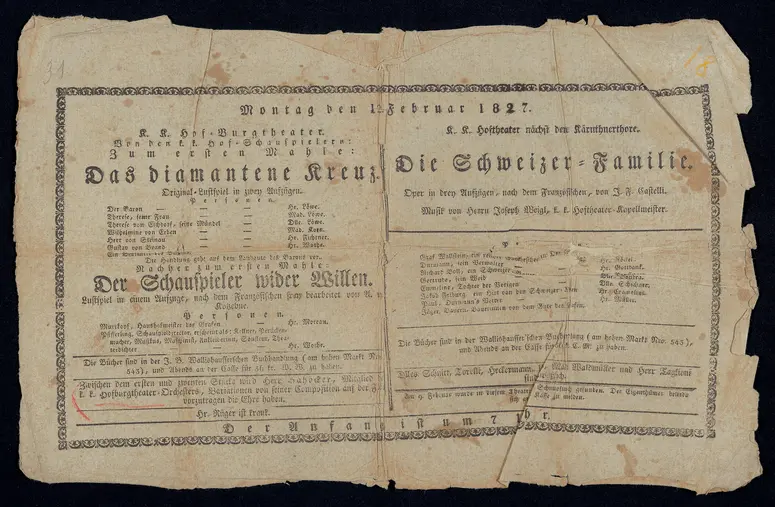 31
18
Montag den 12. Februar 1827.
K. K. Hof-Burgtheater.
Von den k. k. Hof-Schauspielern:
Zum ersten Mahle:
Das diamantene Kreuz.
Original-Lustspiel in zwey Aufzügen.
Personen.
Der Baron — — — Hr. Löwe.
Therese, seine Frau — — — Mad. Löwe.
Therese von Eichdorf, seine Mündel — Dlle. Löwe.
Wilhelmine von Erben — — Mad. Korn.
Herr von Steinau — — — Hr. Fichtner.
Gustav von — — — Hr. Wothe.
Ein Bedienter des Barons.
Die Handlung geht auf dem Landgute des Barons vor.
Nachher zum ersten Mahle:
Der Schauspieler wider Willen.
Lustspiel in einem Aufzuge, nach dem Französischen frey bearbeitet von A. v.
Kotzebue.
Personen.
Haushofmeister des Grafen — Hr. Moreau.
Pfifferling, Schauspieldirector, erscheint als: Kellner,
macher, Souffleur,
dichter — Hr. Wothe.
Die Bücher sind in der J. B. Wallishausserischen Buchhandlung (am hohen Markt Nro.
543), und Abends an der Casse für 36 kr. W. W. zu haben.
Zwischen dem ersten und zweyten Stücke wird Herr Mitglied
k. k. Hofburgtheater-Orchesters, Variationen von seiner Composition auf der
vorzutragen die Ehre haben.
Hr. Rüger ist krank.
K. K. Hoftheater nächst dem Kärnthnerthore.
Die Schweizer-Familie.
Oper in drey Aufzügen, nach dem Französischen, von J. F. Castelli.
Musik von Herrn Joseph Weigl, k. k. Hoftheater-Kapellmeister.
Graf Wallstein, ein
Durmann, sein Verwalter — Hr. Gottdank.
Richard Boll, ein Schweizer
Gertrude, sein Weib
Emmeline, Tochter der Vorigen — Dlle. Schechner.
Jakob Friburg, ein Hirt von den Schweizer-Alpen — Hr. Cramolini.
Paul, Durmann's Neffe
Jäger, Bauern, Bäuerinnen von dem Gute des Grafen.
Die Bücher sind in der Wallishausser'schen Buchhandlung (am hohen Markt Nro. 543),
und Abends an der Casse für kr. C. M. zu haben.
Dlles Schnitt, Torelli, Heckermann, Mad. Waldmüller und Herr Taglioni
sind
Am 9. Februar wurde in diesem Theater Schmuckstück gefunden. Der Eigenthümer beliebe
sich Casse zu melden.
Der Anfang ist um 7 Uhr.